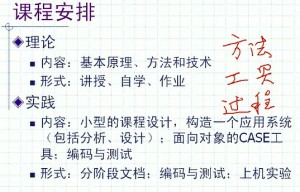 课程安排
理论
内容：基本原理、方法和技术
形式：讲授、自学、作业
实践
内容：小型的课程设计，构造一个应用系统
（包括分析、设计）；面向对象的CASE工
具；编码与测试
形式：分阶段文档；编码与测试；上机实验
方法
工具
过程